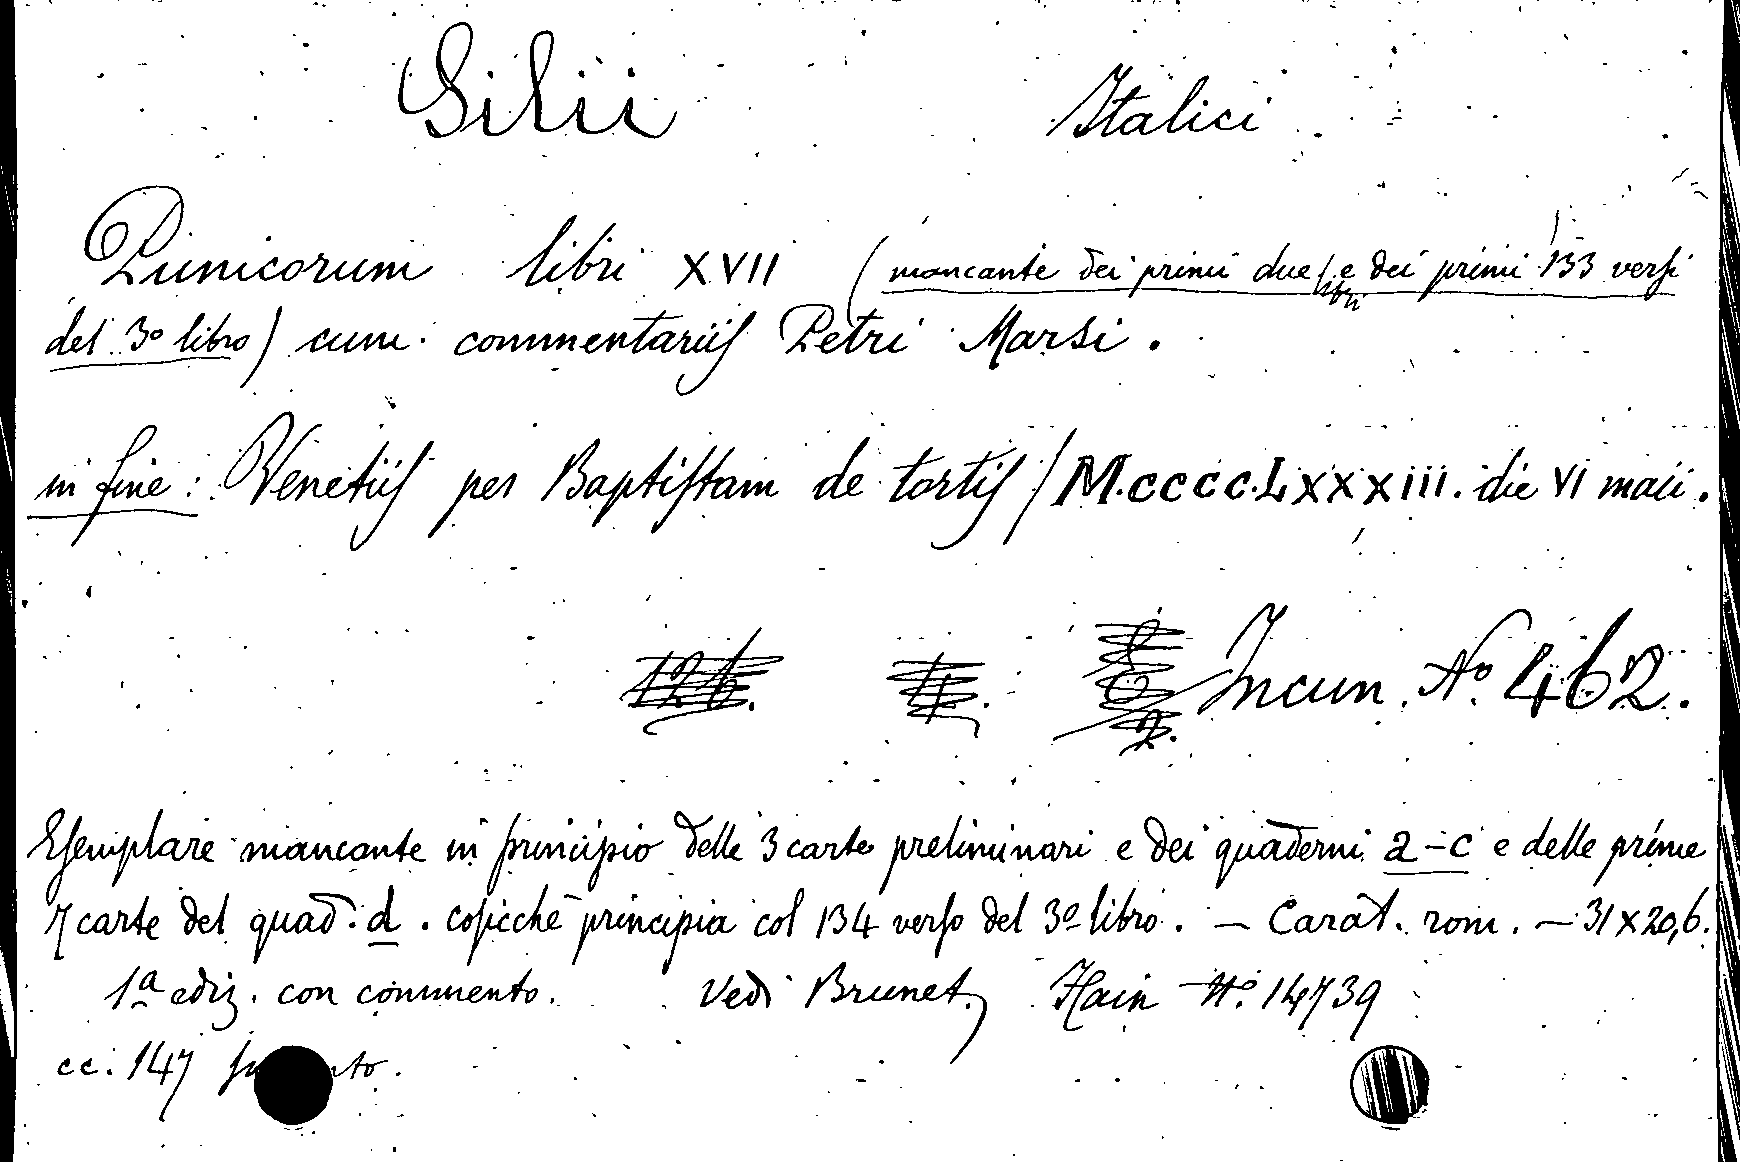 Silii Italici
Punicorum libri XVII (mancante dei primi due libri e dei primi 133 versi
del 3º libro) cum commentariis Petri Marsi.
in fine: Venetiis per Baptistam de tortis / M.cccc.Lxxxiii. die VI maii.
126. 4. Incun. Nº 462.
Esemplare mancante in principio delle 3 carte preliminari e dei quaderni a–c e delle prime
7 carte del quad. d. cosicchè principia col 134 verso del 3º libro. — Carat. rom. — 31 x 20,6.
1ª ediz. con commento. Vedi Brunet, Hain Nº. 14739
cc. 147